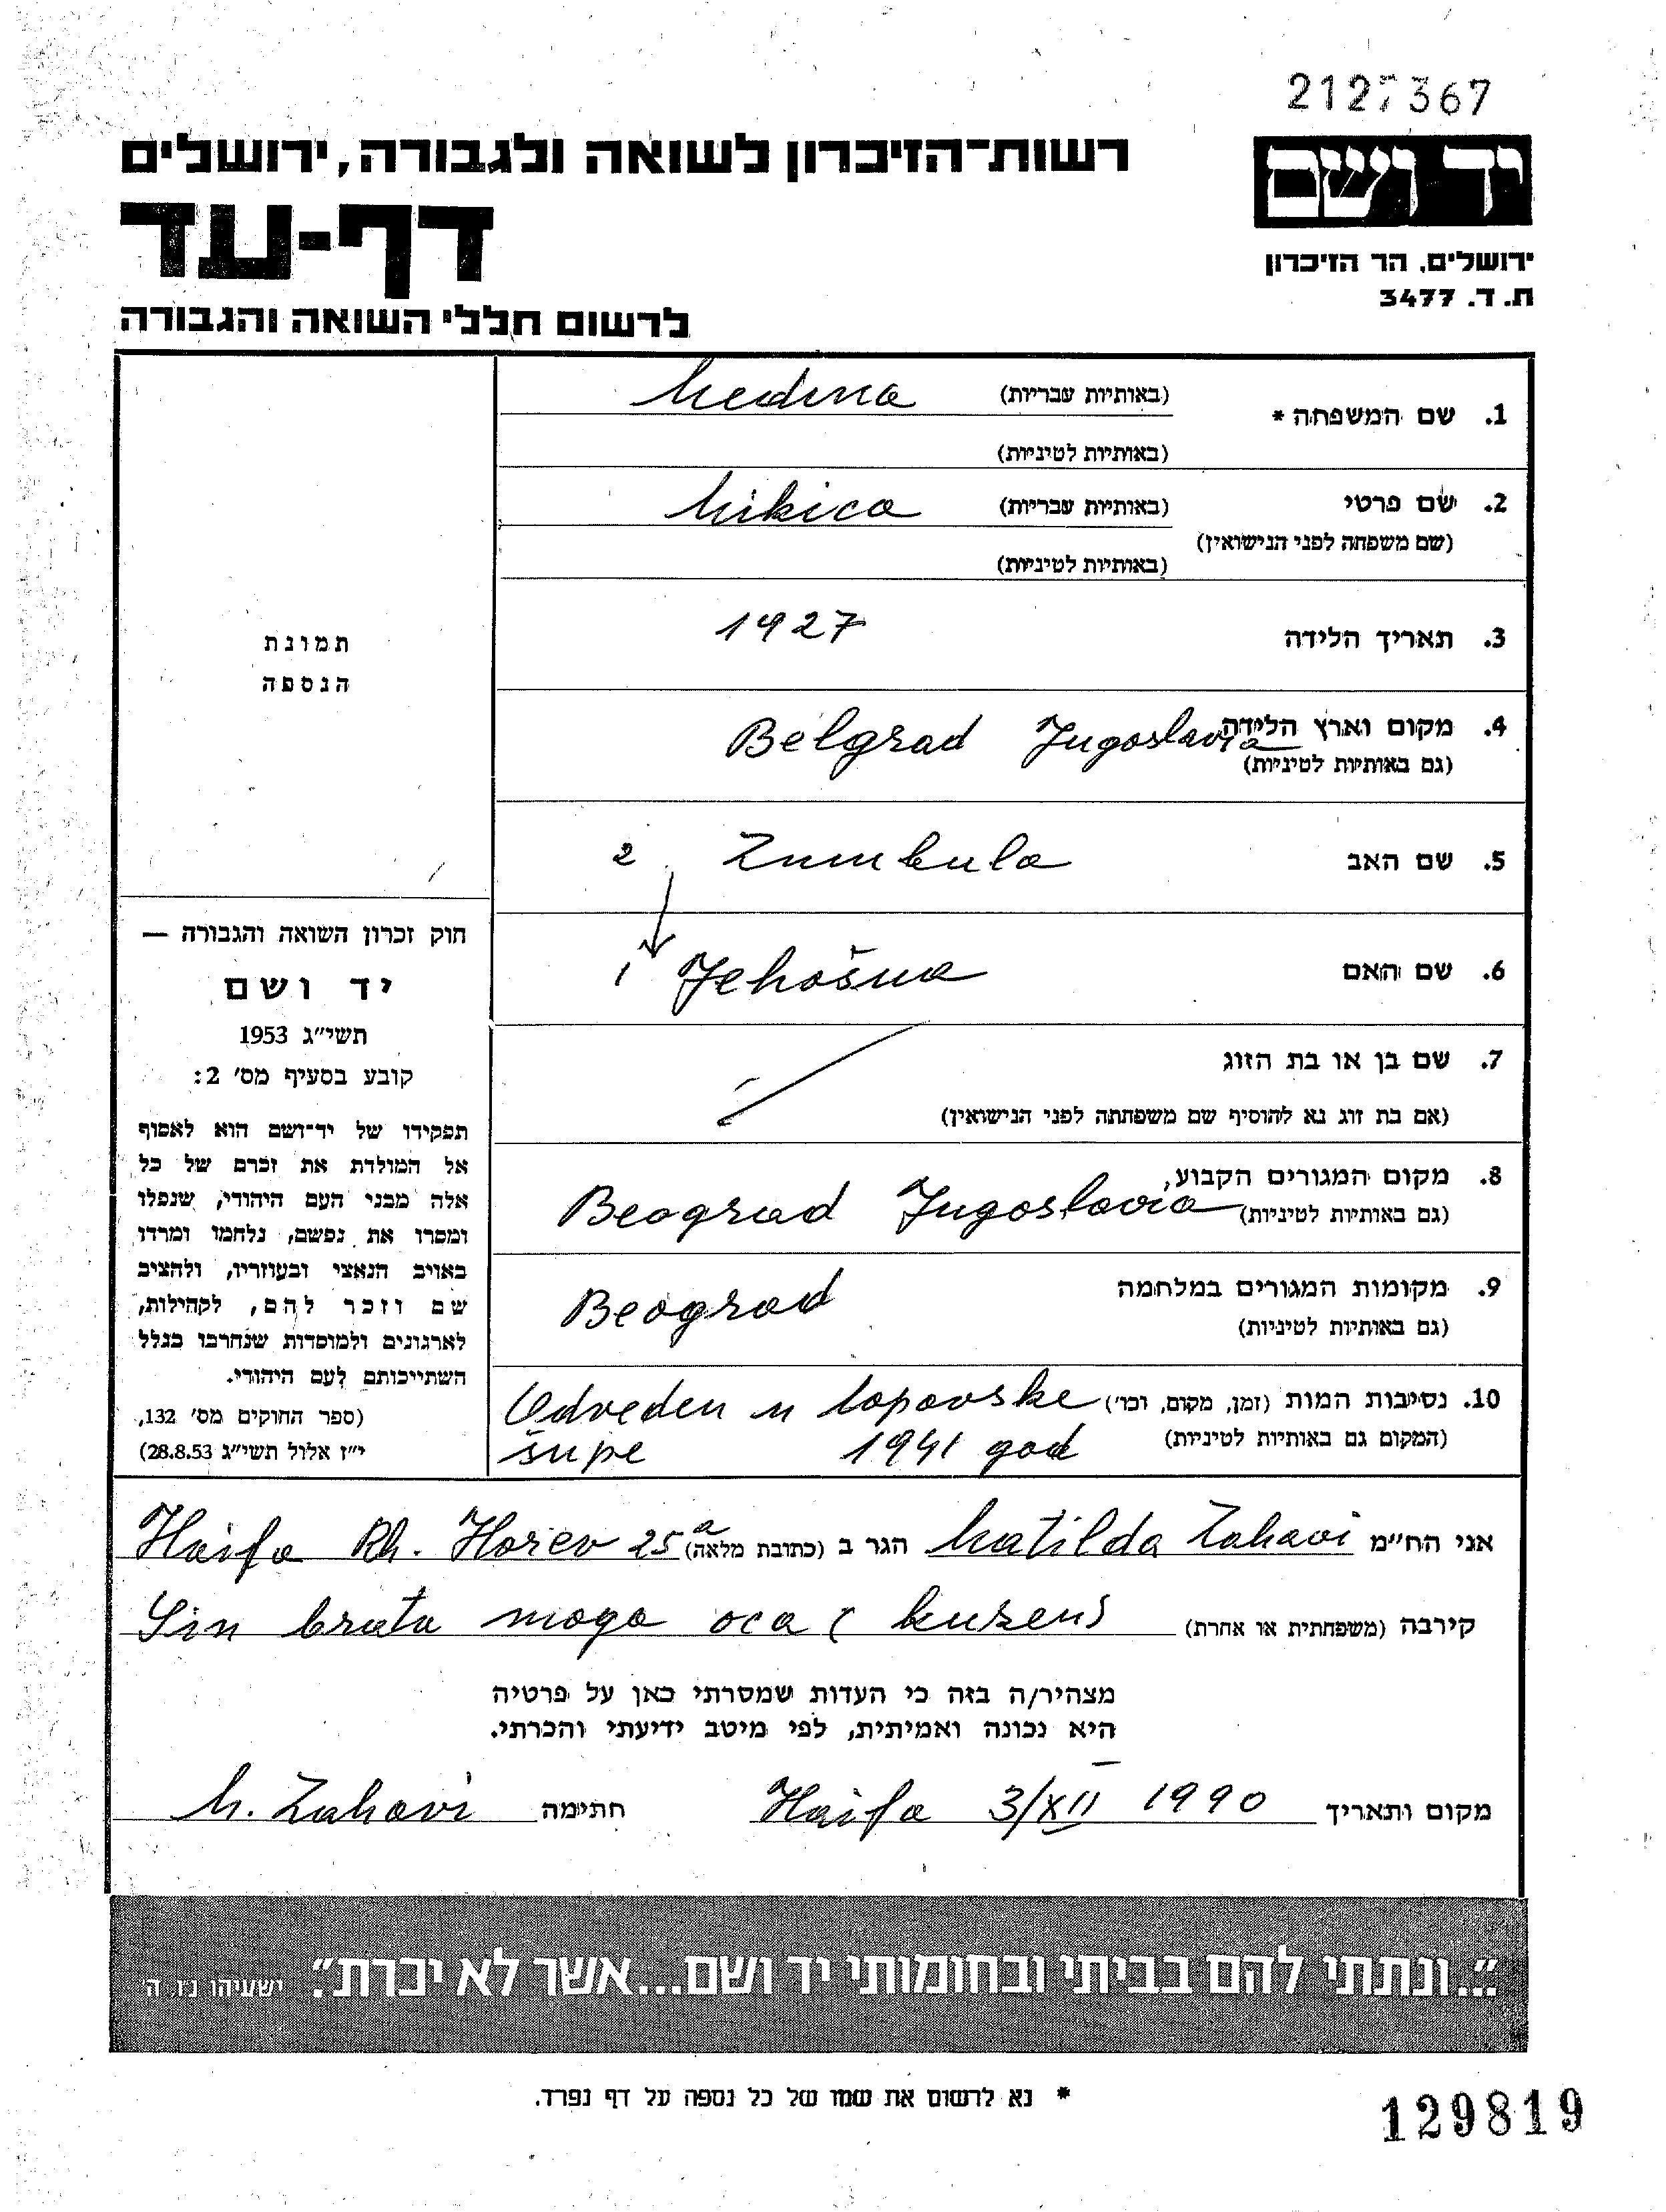 2127367
רשות-הזיכרון לשואה ולגבורה, ירושלים
יד ושם
דף-עד
ירושלים, הר הזיכרון
ת. ד. 3477
לרשום חללי השואה והגבורה
1. שם המשפחה * (באותיות עבריות) Medina
(באותיות לטיניות)
2. שם פרטי (באותיות עבריות) Mikica
(שם משפחה לפני הנישואין)
(באותיות לטיניות)
3. תאריך הלידה 1927
4. מקום וארץ הלידה Belgrad Jugoslavia
(גם באותיות לטיניות)
5. שם האב 2 Zumbula
6. שם האם 1 Jehošua
7. שם בן או בת הזוג
(אם בת זוג נא להוסיף שם משפחתה לפני הנישואין)
8. מקום המגורים הקבוע, Beograd Jugoslavia
(גם באותיות לטיניות)
9. מקומות המגורים במלחמה Beograd
(גם באותיות לטיניות)
10. נסיבות המות (זמן, מקום, וכו') Odveden u topovske
(המקום גם באותיות לטיניות) šupe 1941 god
תמונת
הנספה
חוק זכרון השואה והגבורה —
יד ושם
תשי"ג 1953
קובע בסעיף מס' 2:
תפקידו של יד-ושם הוא לאסוף
אל המולדת את זכרם של כל
אלה מבני העם היהודי, שנפלו
ומסרו את נפשם, נלחמו ומרדו
באויב הנאצי ובעוזריו, ולהציב
שם וזכר להם, לקהילות,
לארגונים ולמוסדות שנחרבו בגלל
השתייכותם לעם היהודי.
(ספר החוקים מס' 132,
י"ז אלול תשי"ג 28.8.53)
אני הח"מ Matilda Zahavi הגר ב (כתובת מלאה) Haifa Rh. Horev 25a
קירבה (משפחתית או אחרת) Sin brata moga oca ( kuzen)
מצהיר/ה בזה כי העדות שמסרתי כאן על פרטיה
היא נכונה ואמיתית, לפי מיטב ידיעתי והכרתי.
מקום ותאריך Haifa 3/XII 1990 חתימה M. Zahavi
"...ונתתי להם בביתי ובחומותי יד ושם...אשר לא יכרת". ישעיהו נ"ו, ה'
* נא לרשום את שמו של כל נספה על דף נפרד.
129819